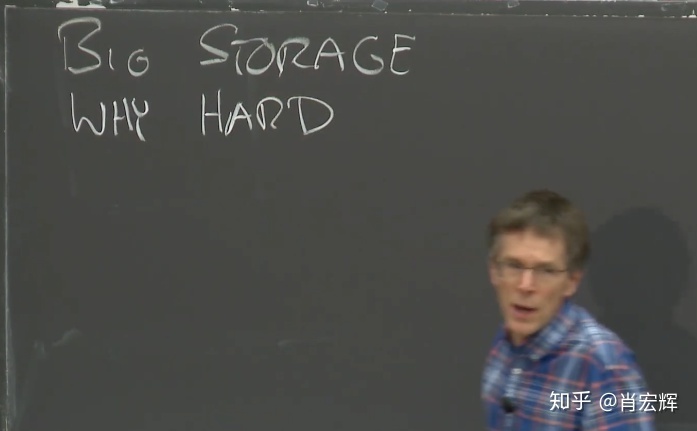 BIG STORAGE
WHY HARD
知乎 @肖宏辉